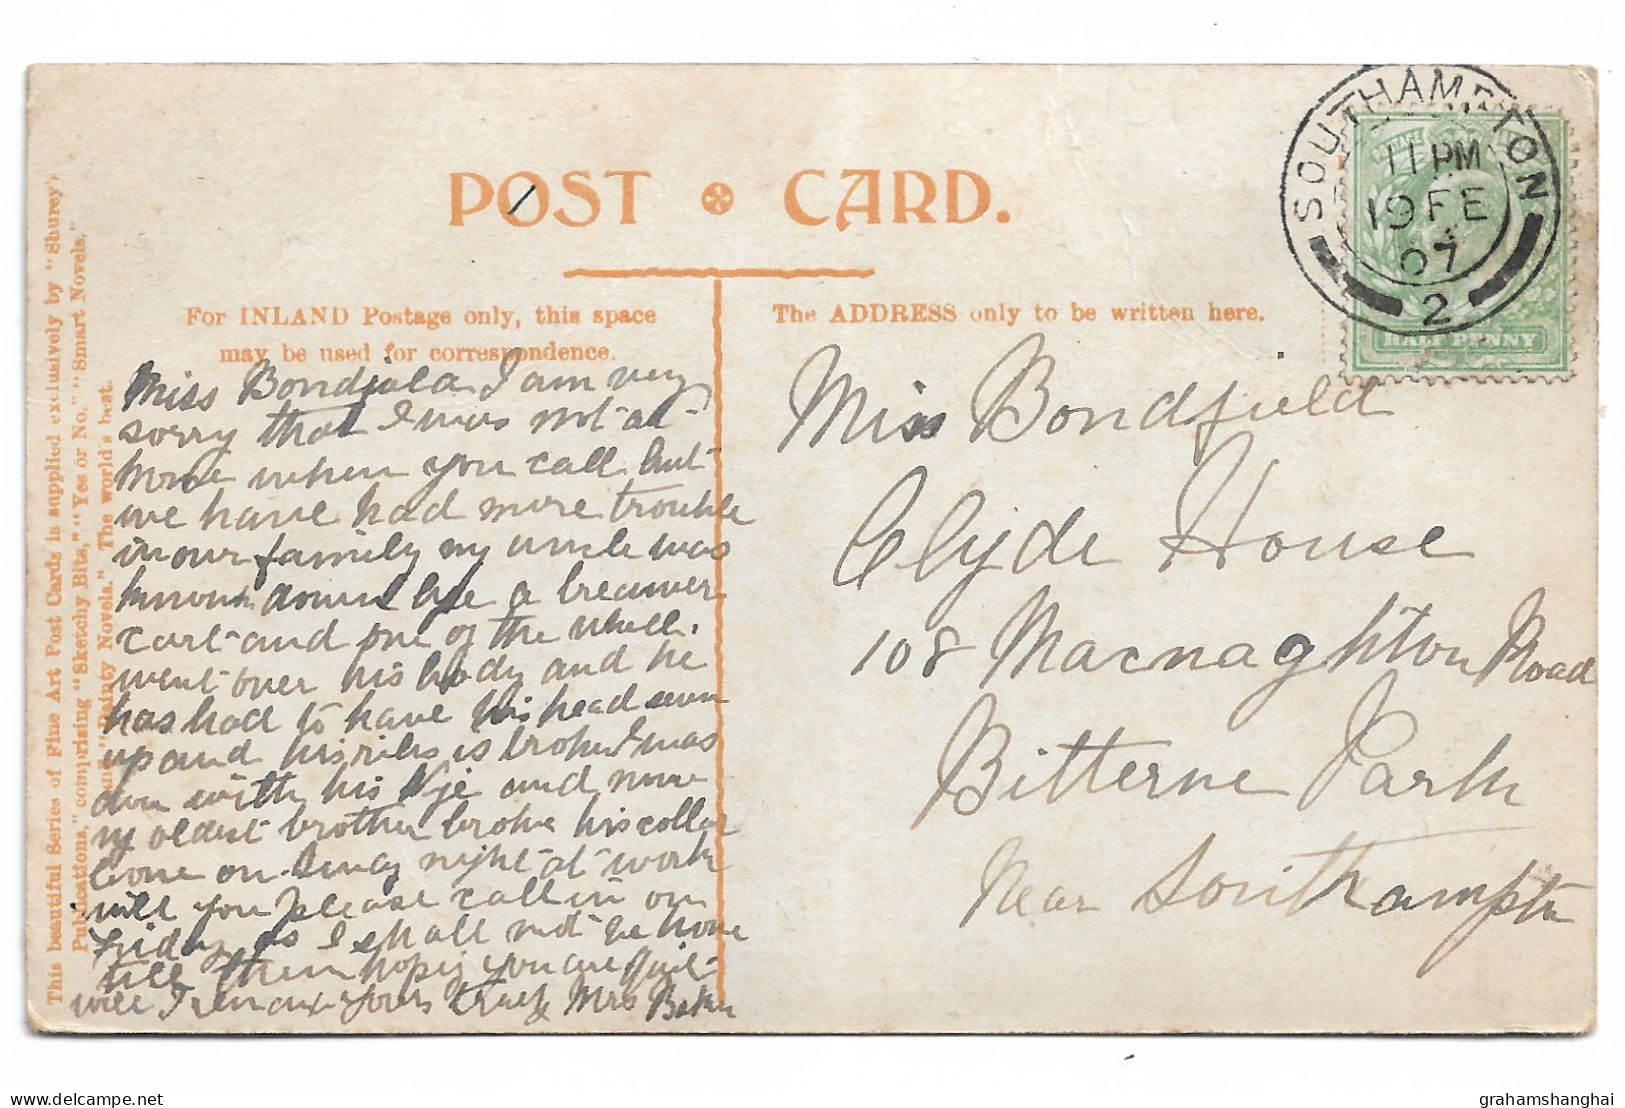 SOUTHAMPTON
11 PM
19 FE
07
2
POSTAGE
HALF PENNY
POST CARD.
For INLAND Postage only, this space
may be used for correspondence.
The ADDRESS only to be written here.
This beautiful Series of Fine Art Post Cards is supplied exclusively by "Shurey's
Publications," comprising "Sketchy Bits," "Yes or No." "Smart Novels,"
"Dainty Novels." The world's best.
Miss I am very
sorry that I was not at
home when you call but
we have had more trouble
in our family my uncle was
down bye a
cart and one of the
went over his body and he
has had to have his head sewn
up and his ribs is broke I was
with his and now
my oldest brother broke his collar
bone on night at work
will you please call in on
Friday as I shall not be home
till then hoping you are quit
well I Yours truly Mrs Baker
Miss Bondfield
Clyde House
108 Macnaghton Road
Bitterne Park
Near Southampton
grahamshanghai